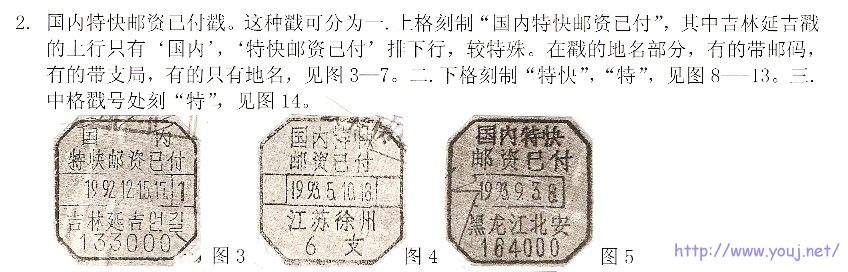 2. 国内特快邮资已付戳。这种戳可分为一.上格刻制“国内特快邮资已付”，其中吉林延吉戳
的上行只有‘国内’，‘特快邮资已付’排下行，较特殊。在戳的地名部分，有的带邮码，
有的带支局，有的只有地名，见图3—7。二.下格刻制“特快”，“特”，见图8——13。三.
中格戳号处刻“特”，见图14。
国 内
特快邮资已付
1992.12.15.17 1
吉林延吉 연길
133000
图3
国内特快
邮资已付
1993.5.10.18
江苏徐州
6 支
图4
国内特快
邮资已付
1993.9.3.8
黑龙江北安
164000
图5
http://www.youj.net/